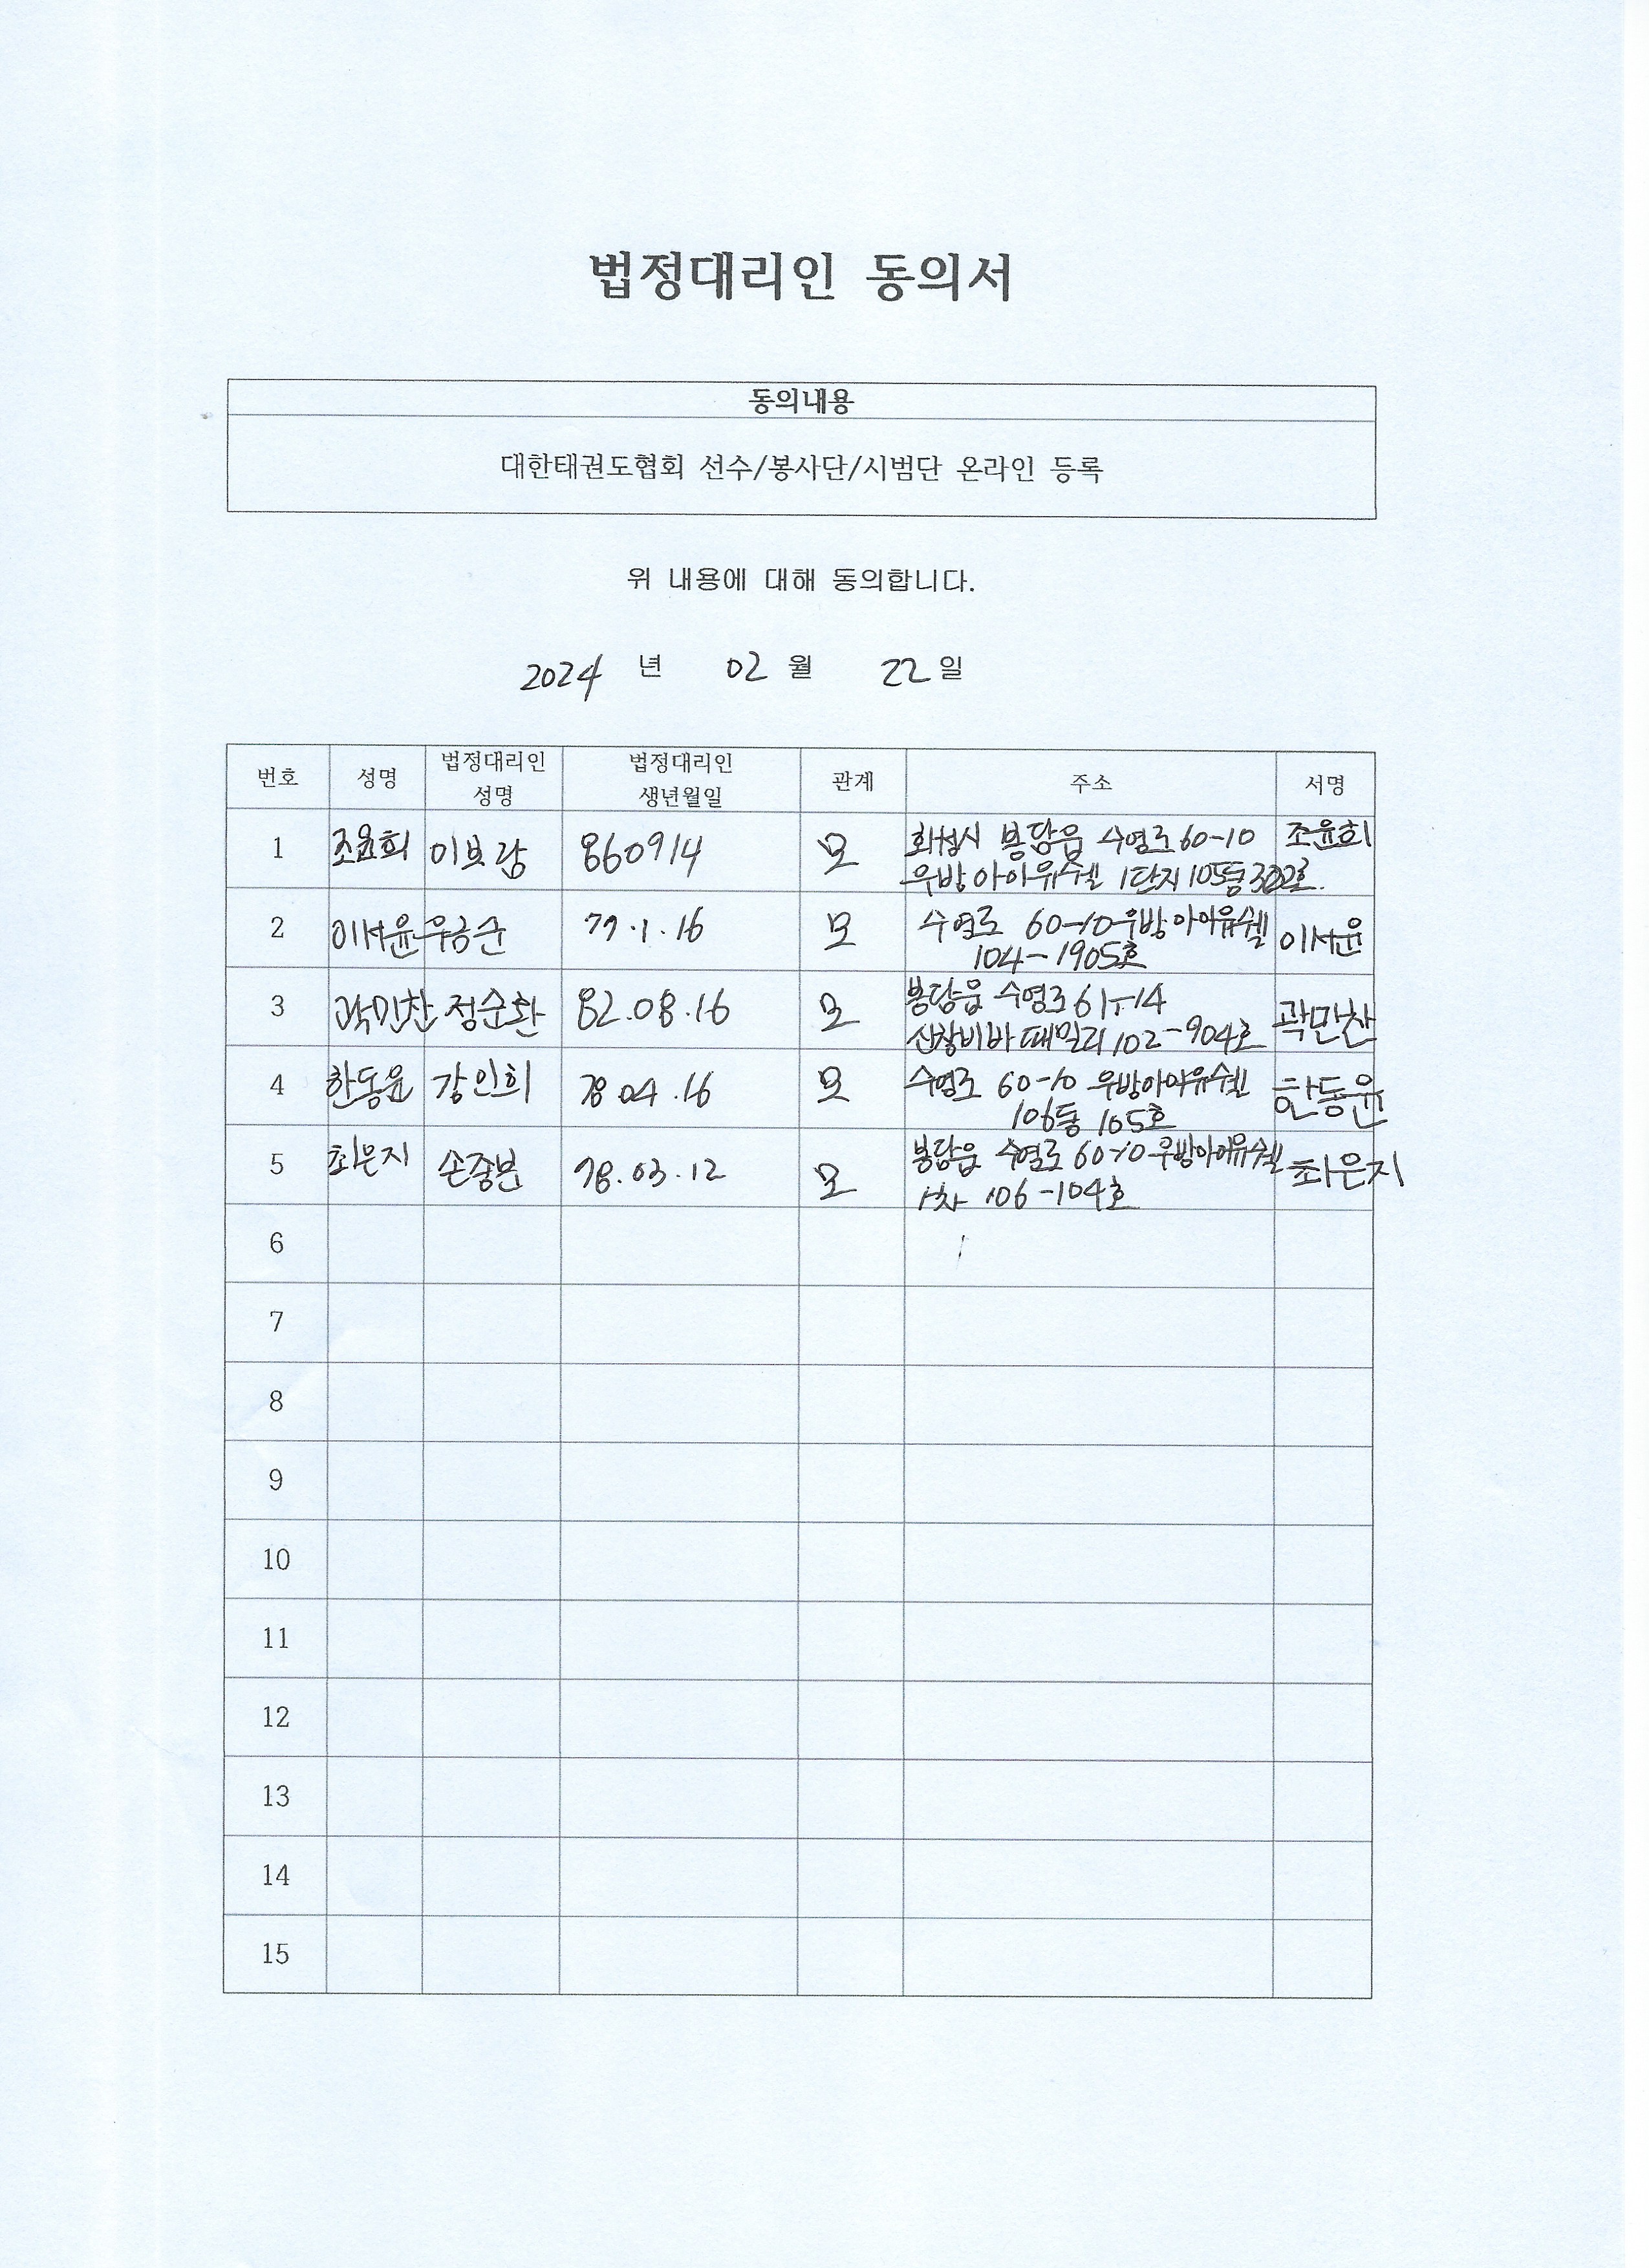 법정대리인 동의서
동의내용
대한태권도협회 선수/봉사단/시범단 온라인 등록
위 내용에 대해 동의합니다.
2024 년 02 월 22 일
번호 성명 법정대리인 성명 법정대리인 생년월일 관계 주소 서명
1 조윤희 이보람 860914 모 화성시 봉담읍 수영로 60-10 조윤희
우방아이유쉘 1단지 105동 302호.
2 이서윤 우금순 79.1.16 모 수영로 60-10 우방아이유쉘 이서윤
104-1905호
3 곽민찬 정순화 82.08.16 모 봉담읍 수영로 61-14 곽민찬
신창비바패밀리 102-904호
4 한동윤 강인희 78.04.16 모 수영로 60-10 우방아이유쉘 한동윤
106동 105호
5 최은지 손중분 78.03.12 모 봉담읍 수영로 60-10 우방아이유쉘 최은지
1차 106-104호
6
7
8
9
10
11
12
13
14
15